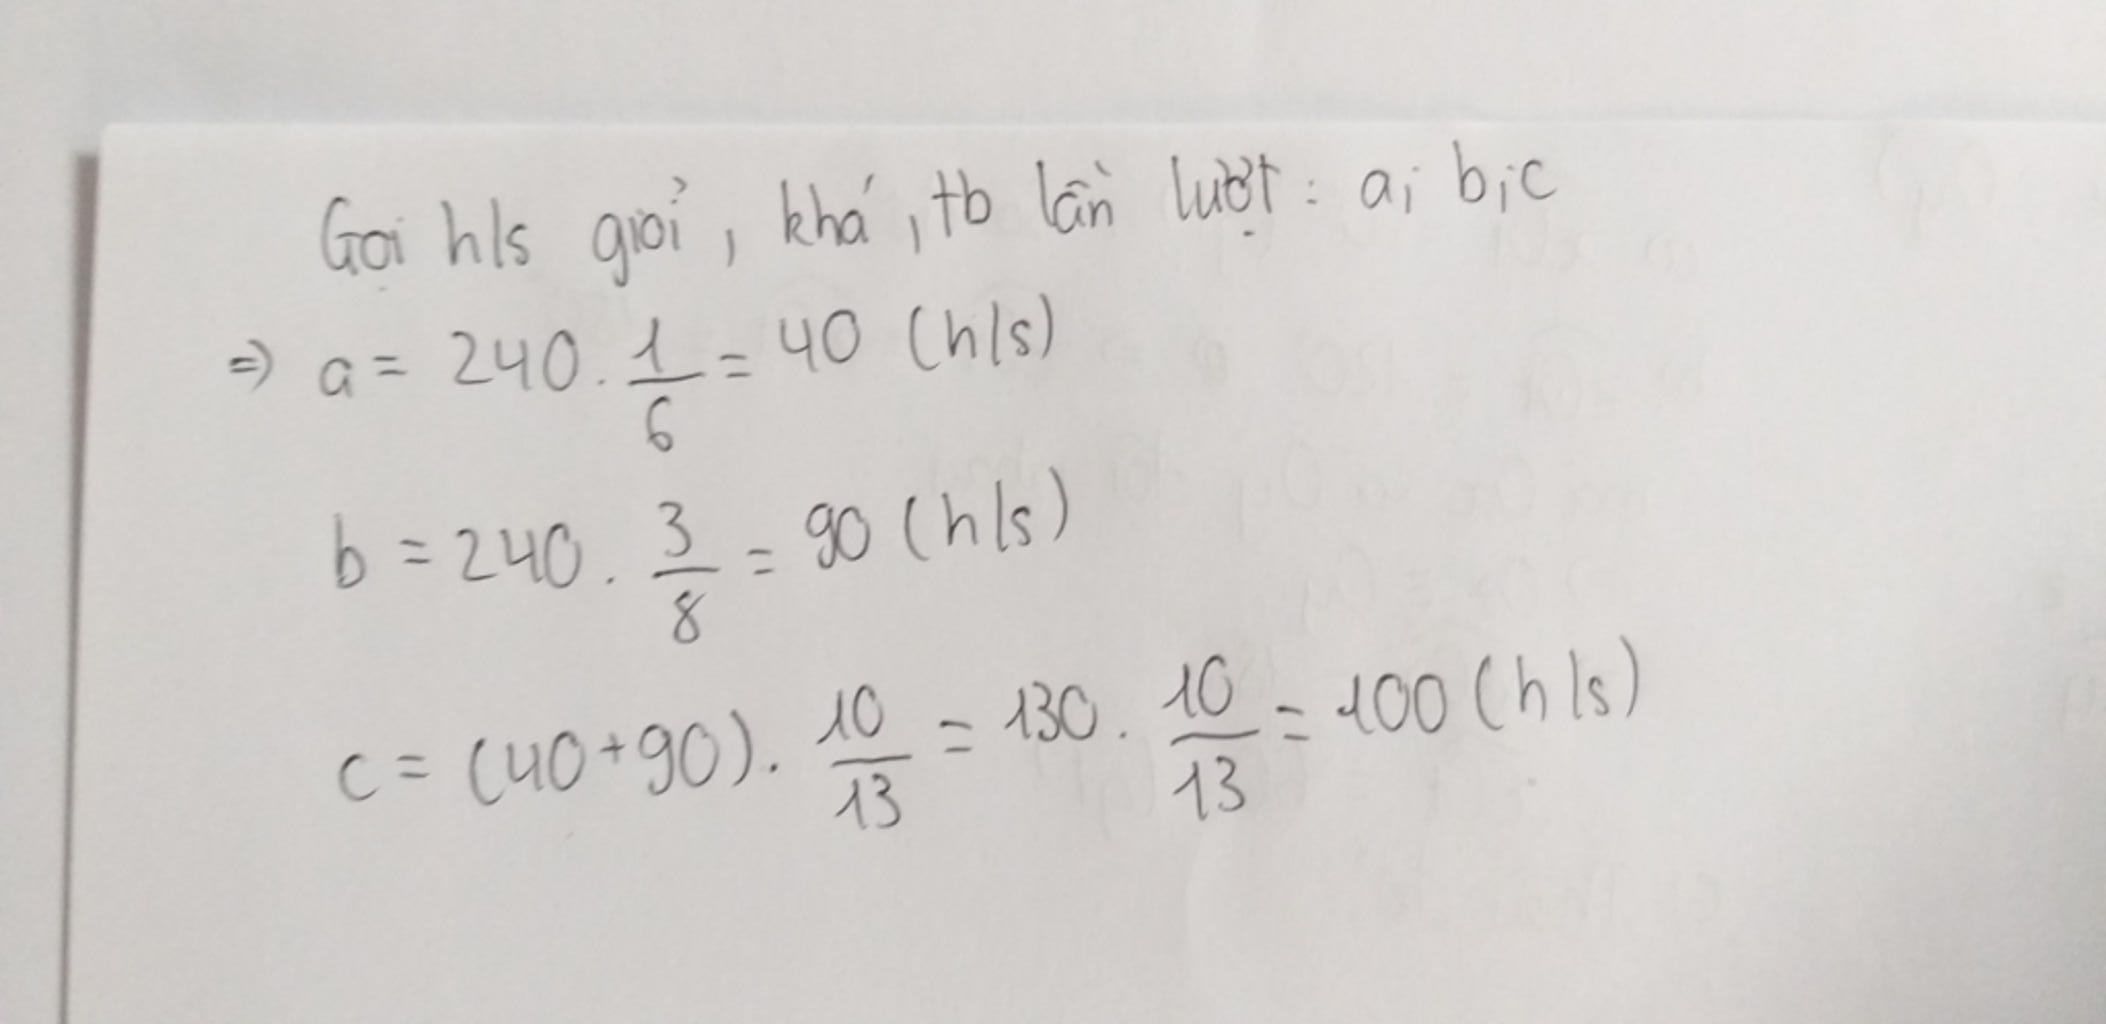 Gọi h/s giỏi, khá, tb lần lượt : a; b; c
=> a = 240 . 1/6 = 40 (h/s)
b = 240 . 3/8 = 90 (h/s)
c = (40+90) . 10/13 = 130 . 10/13 = 100 (h/s)